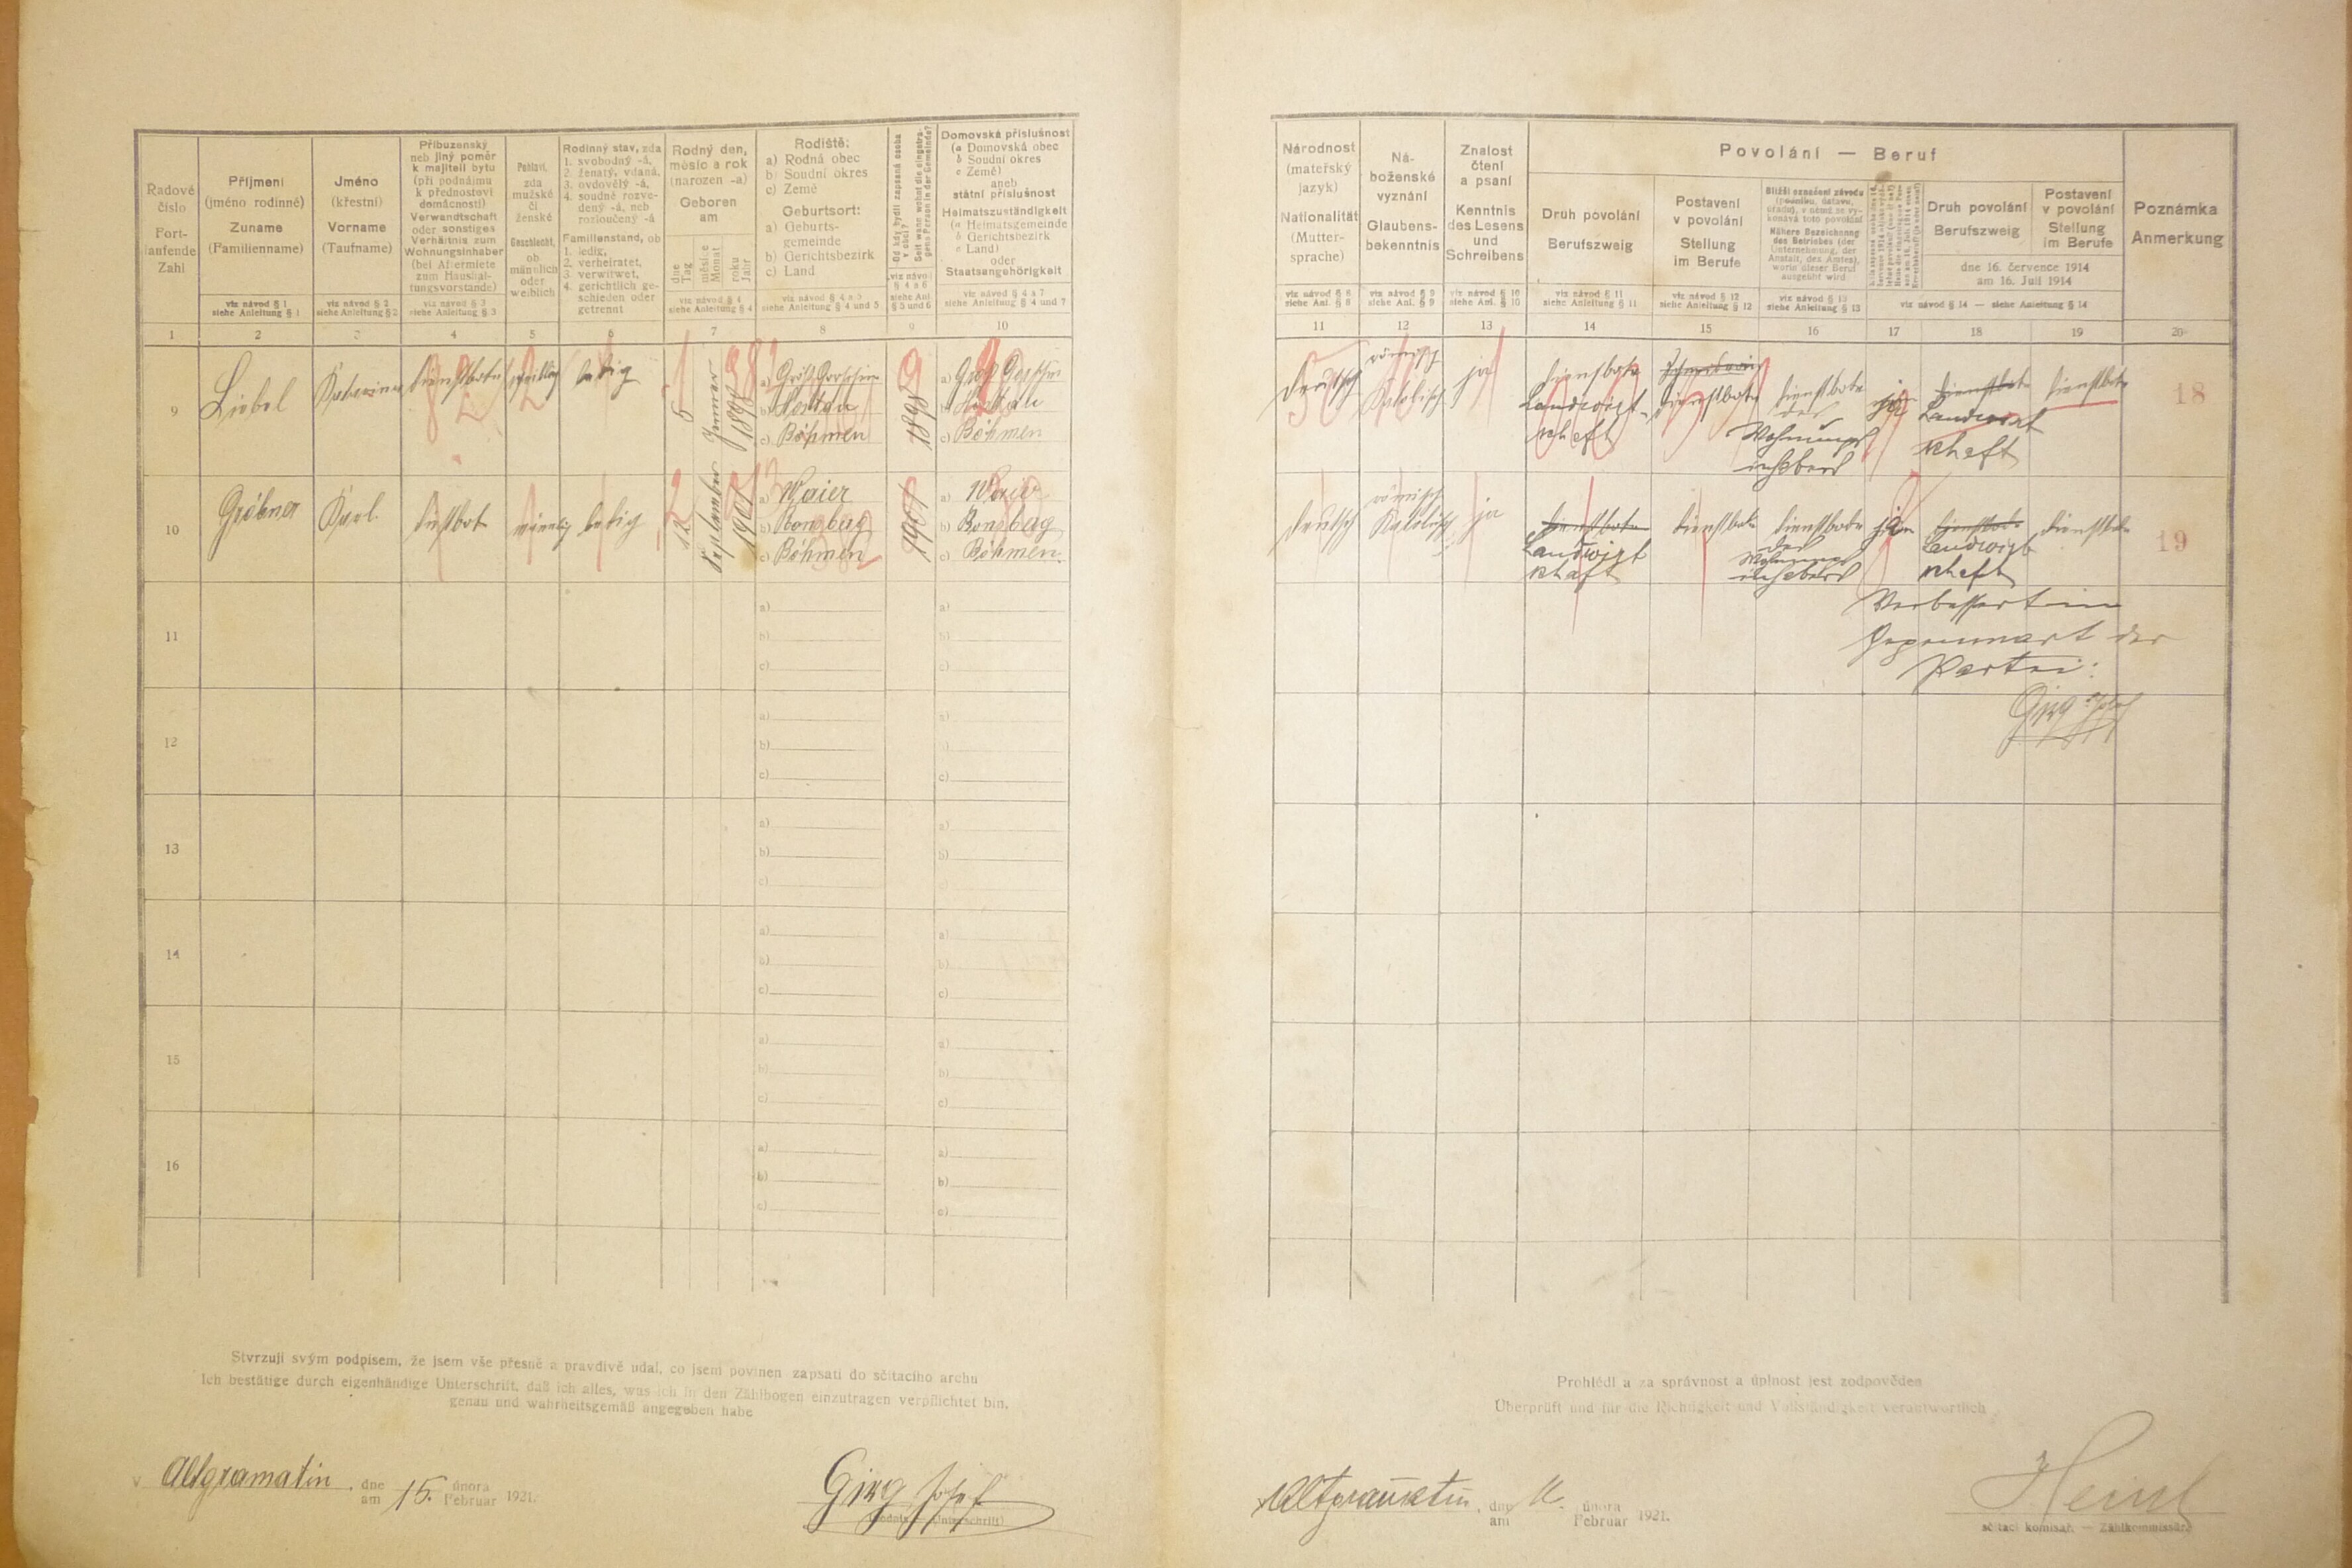 Řadové
číslo
Fort-
laufende
Zahl
Příjmení
(jméno rodinné)
Zuname
(Familienname)
viz návod § 1
siehe Anleitung § 1
Jméno
(křestní)
Vorname
(Taufname)
viz návod § 2
siehe Anleitung § 2
Příbuzenský
neb jiný poměr
k majiteli bytu
(při podnájmu
k přednostovi
domácnosti)
Verwandtschaft
oder sonstiges
Verhältnis zum
Wohnungsinhaber
(bei Aftermiete
zum Haushal-
tungsvorstande)
viz návod § 3
siehe Anleitung § 3
Pohlaví,
zda
mužské
či
ženské
Geschlecht,
ob
männlich
oder
weiblich
Rodinný stav, zda
1. svobodný -á,
2. ženatý, vdaná,
3. ovdovělý -á,
4. soudně rozve-
dený -á, neb
rozloučený -á
Familienstand, ob
1. ledig,
2. verheiratet,
3. verwitwet,
4. gerichtlich ge-
schieden oder
getrennt
Rodný den,
měsíc a rok
(narozen -a)
Geboren
am
dne
Tag
měsíce
Monat
roku
Jahr
viz návod § 4
siehe Anleitung § 4
Rodiště:
a) Rodná obec
b) Soudní okres
c) Země
Geburtsort:
a) Geburts-
gemeinde
b) Gerichtsbezirk
c) Land
viz návod § 4 a 5
siehe Anleitung § 4 und 5
Od kdy bydlí zapsaná osoba
v obci?
Seit wann wohnt die eingetra-
gene Person in der Gemeinde?
viz návod
§ 4 a 6
siehe Anl.
§ 5 und 6
Domovská příslušnost
(a Domovská obec
b Soudní okres
c Země)
aneb
státní příslušnost
Heimatszuständigkeit
(a Heimatsgemeinde
b Gerichtsbezirk
c Land)
oder
Staatsangehörigkeit
viz návod § 4 a 7
siehe Anleitung § 4 und 7
1 2 3 4 5 6 7 8 9 10
9 Liebel Katarina Dienstbote weiblich ledig 5 Jänner 1895
b) Hostau
c) Böhmen
1895
b) Hostau
c) Böhmen
10 Gröbner Karl männlich ledig 12 September 1901
a) Waier
b) Ronsberg
c) Böhmen
1901
a) Waier
b) Ronsberg
c) Böhmen
11
a)
b)
c)
12
a)
b)
c)
13
a)
b)
c)
14
a)
b)
c)
15
a)
b)
c)
16
a)
b)
c)
Stvrzuji svým podpisem, že jsem vše přesně a pravdivě udal, co jsem povinen zapsati do sčítacího archu
Ich bestätige durch eigenhändige Unterschrift, daß ich alles, was ich in den Zählbogen einzutragen verpflichtet bin,
genau und wahrheitsgemäß angegeben habe
v Altgramatin, dne
am 15. února
Februar 1921.
Girg Josef
(Podpis — Unterschrift)
Národnost
(mateřský
jazyk)
Nationalität
(Mutter-
sprache)
viz návod § 8
siehe Anl. § 8
Ná-
boženské
vyznání
Glaubens-
bekenntnis
viz návod § 9
siehe Anl. § 9
Znalost
čtení
a psaní
Kenntnis
des Lesens
und
Schreibens
viz návod § 10
siehe Anl. § 10
Povolání — Beruf
Druh povolání
Berufszweig
viz návod § 11
siehe Anleitung § 11
Postavení
v povolání
Stellung
im Berufe
viz návod § 12
siehe Anleitung § 12
Bližší označení závodu
(podniku, ústavu,
úřadu), v němž se vy-
konává toto povolání
Nähere Bezeichnung
des Betriebes (der
Unternehmung, der
Anstalt, des Amtes),
worin dieser Beruf
ausgeübt wird
viz návod § 13
siehe Anleitung § 13
Druh povolání
Berufszweig
Postavení
v povolání
Stellung
im Berufe
dne 16. července 1914
am 16. Juli 1914
viz návod § 14 — siehe Anleitung § 14
Poznámka
Anmerkung
11 12 13 14 15 16 17 18 19 20
Deutsch
römisch
Katolisch
ja
Dienstbote
Landwirt-
schaft
Dienstbote
Dienstbote
der
Wohnungs
inhabers
ja
Dienstbote
Landwirt
schaft
Dienstbote
18
Deutsch
römisch
Katolisch
ja
Dienstbote
Landwirt
schaft
Dienstbote
Dienstbote
der
Wohnungs
inhabers
Dienstbote
Landwirt
schaft
Dienstbote
19
Verbessert im
Gegenwart der
Partei:
Girg Josef
Prohlédl a za správnost a úplnost jest zodpověden
Überprüft und für die Richtigkeit und Vollständigkeit verantwortlich
Altgramatin, dne
am února
Februar 1921.
sčítací komisař. — Zählkommissär.